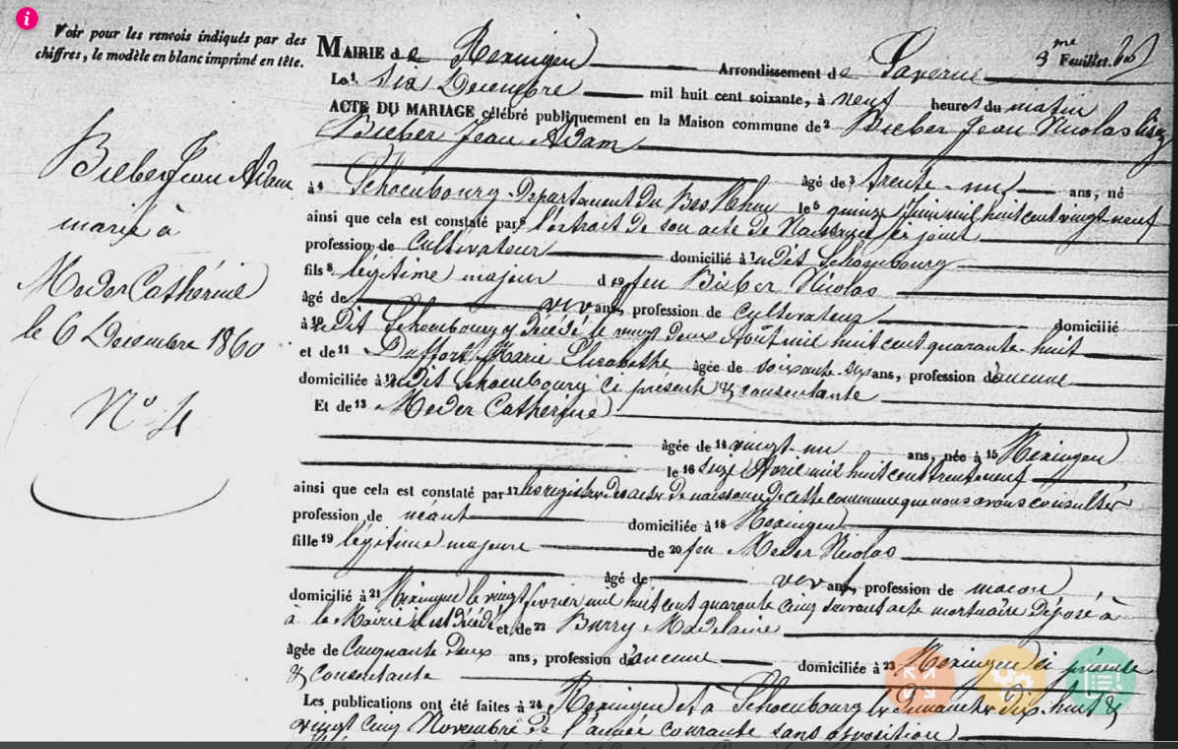 Voir pour les renvois indiqués par des
chiffres, le modèle en blanc imprimé en tête.
Bieber Jean Adam
marié à
Meder Catherine
le 6 Décembre 1860
N° 4
MAIRIE de Rexingen Arrondissement de Saverne 3me Feuillet.
Le1 six Décembre mil huit cent soixante, à neuf heures du matin
ACTE DU MARIAGE célébré publiquement en la Maison commune de2 Bieber Jean Nicolas
Bieber Jean Adam
âgé de3 trente-un ans, né
à4 Schoenbourg Département du Bas Rhin le5 quinze Juin mil huit cent vingt neuf
ainsi que cela est constaté par6 l'extrait de son acte de Naissance ci joint
profession de Cultivateur domicilié à7 dit Schoenbourg
fils8 légitime majeur de9 feu Bieber Nicolas
âgé de viv ans, profession de Cultivateur domicilié
à10 dit Schoenbourg y décédé le vingt deux Août mil huit cent quarante huit
et de11 Duffort Marie Elisabethe âgée de soixante six ans, profession d'aucune
domiciliée à12 dit Schoenbourg ci présente & consentante
Et de13 Meder Catherine
âgée de14 vingt-un ans, née à15 Rexingen
le16 Avril mil huit cent trente neuf
ainsi que cela est constaté par17 les registres des actes de naissance de cette commune que nous avons consultés
profession de néant domiciliée à18 Rexingen
fille19 légitime majeure de20 feu Meder Nicolas
âgé de viv ans, profession de maçon
domicilié à21 Rexingen le vingt février mil huit cent quarante cinq suivant acte mortuaire déposé à
à la Mairie il est décédé et de22 Burry Madelaine
âgée de Cinquante deux ans, profession d'aucune domiciliée à23 Rexingen ci présente
& consentante
Les publications ont été faites à24 Rexingen et à Schoenbourg les dimanches dix-huit &
vingt cinq Novembre de l'année courante sans opposition